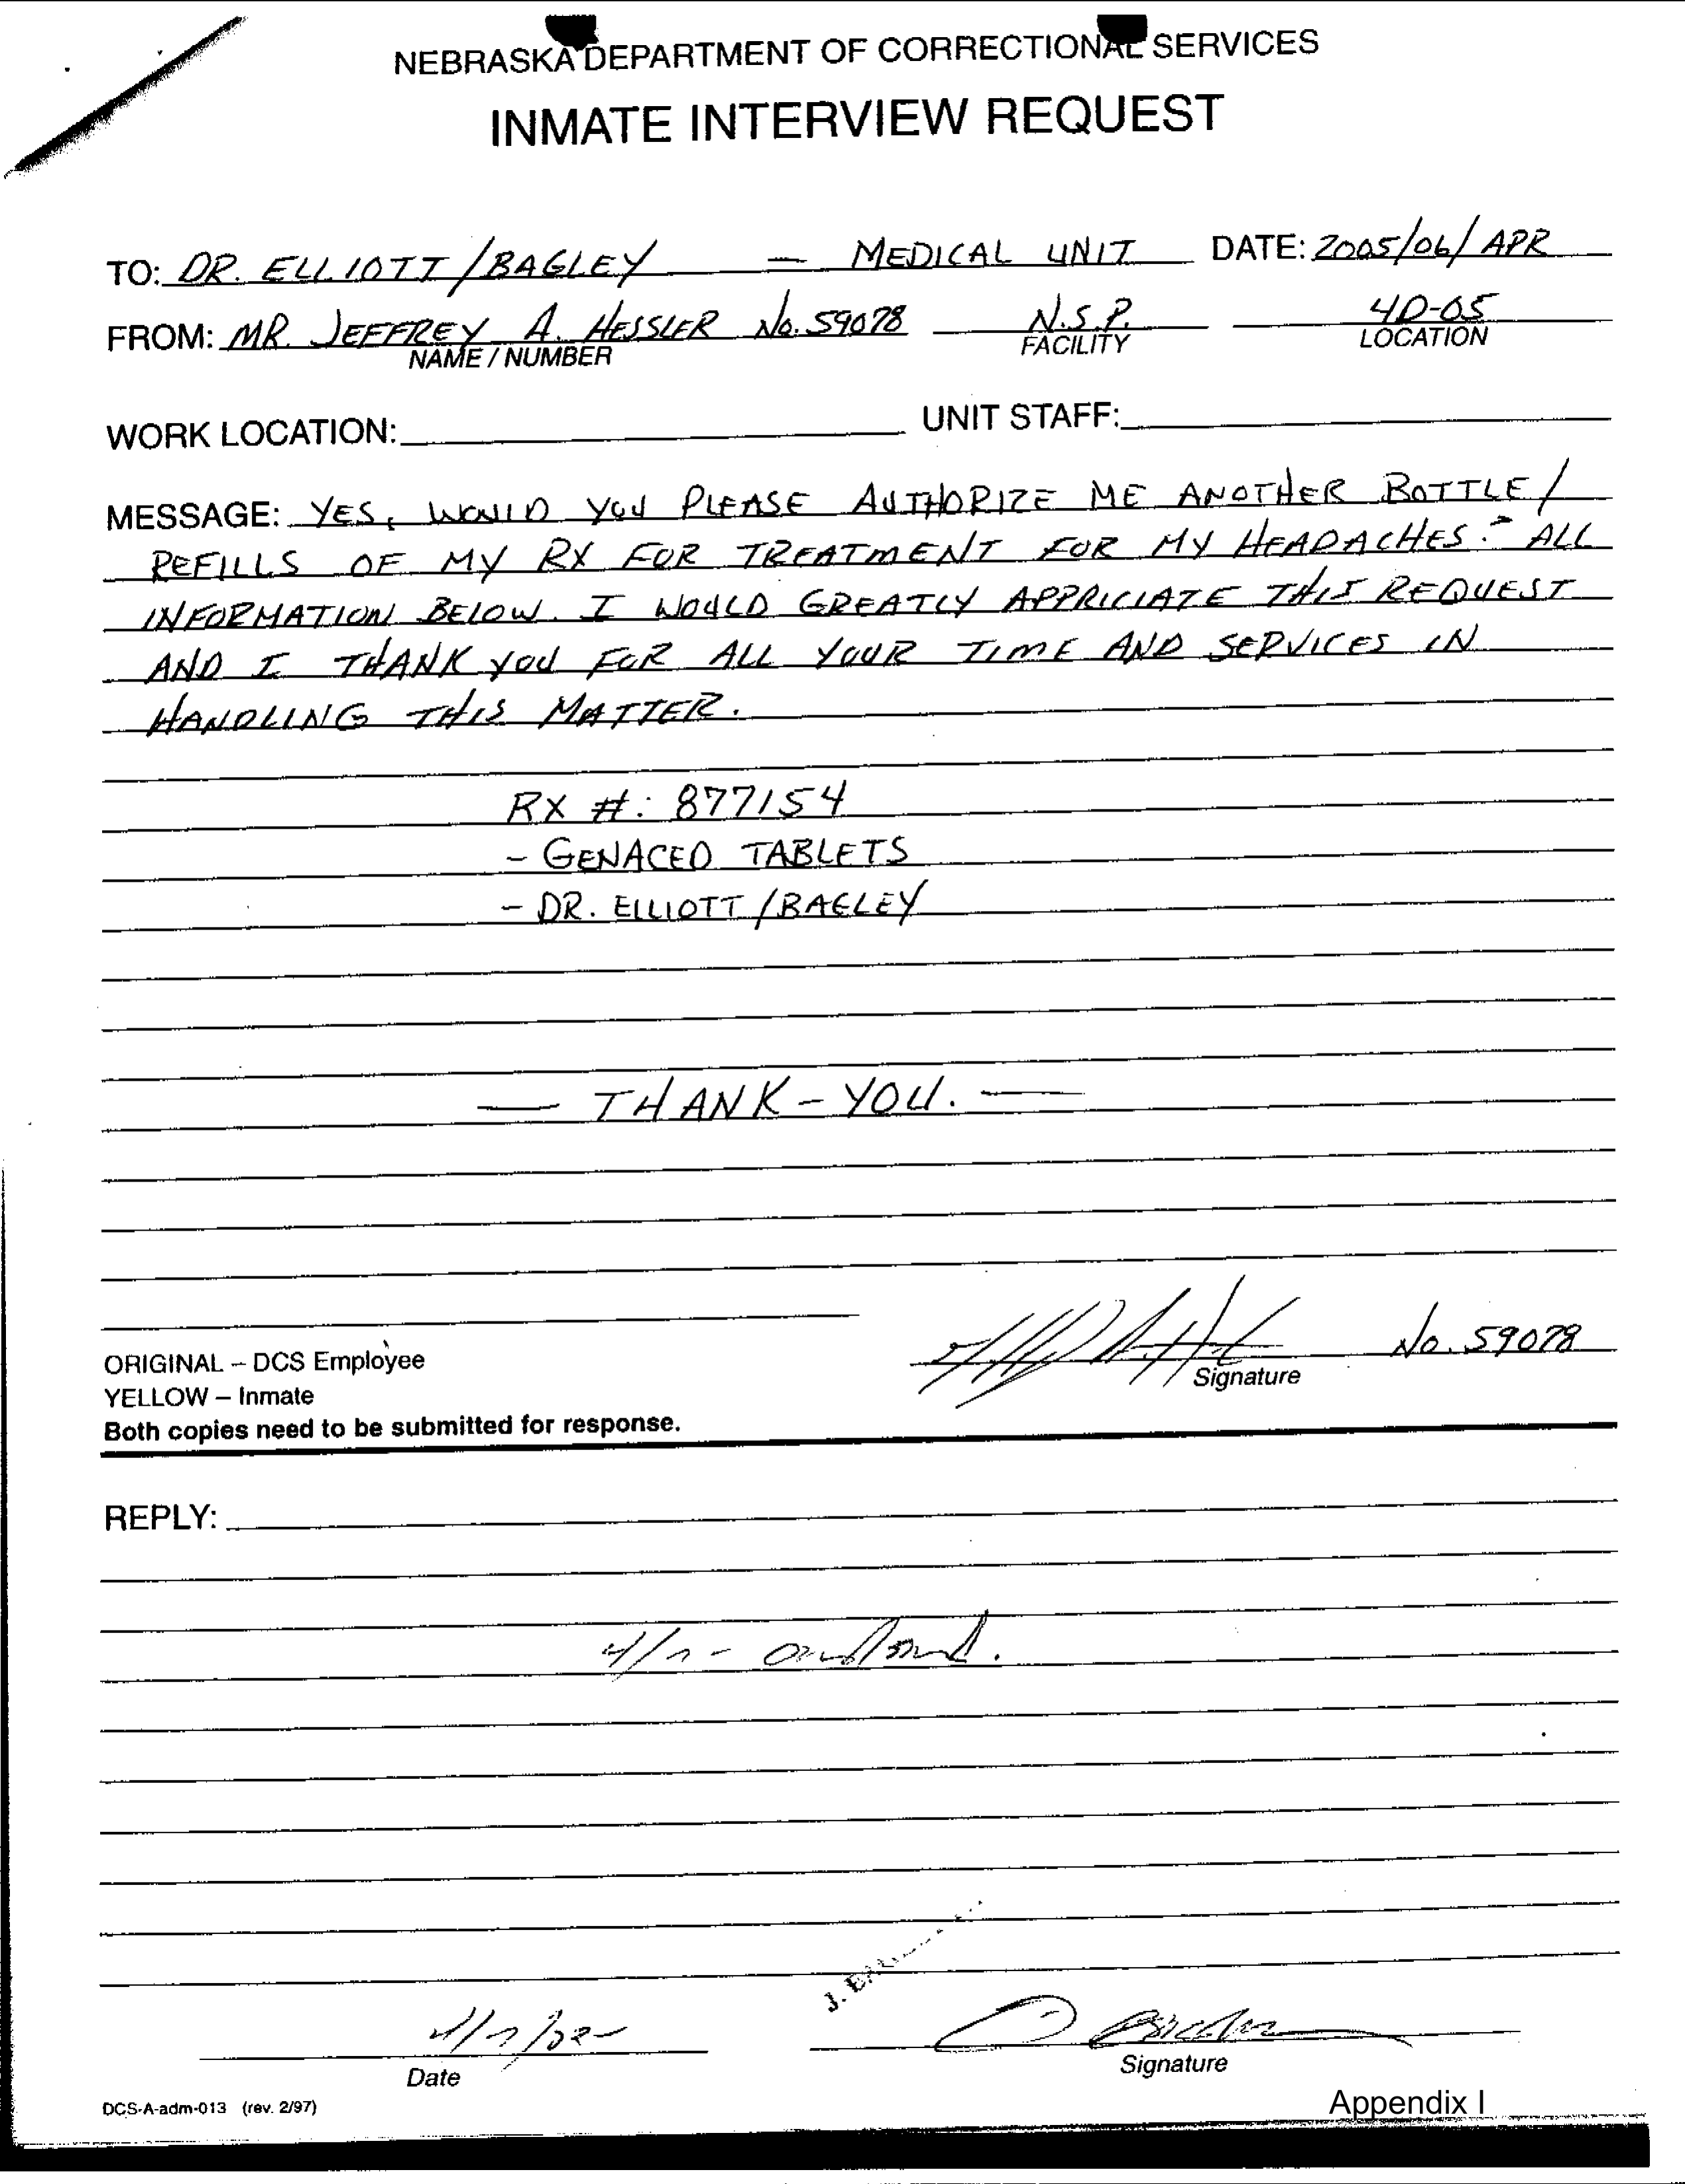 NEBRASKA DEPARTMENT OF CORRECTIONAL SERVICES
INMATE INTERVIEW REQUEST
TO: DR. ELLIOTT / BAGLEY — MEDICAL UNIT DATE: 2005/06/APR
FROM: MR. JEFFREY A. HESSLER No. 59078 N.S.P. 4D-05
NAME / NUMBER FACILITY LOCATION
WORK LOCATION: UNIT STAFF:
MESSAGE: YES, WOULD YOU PLEASE AUTHORIZE ME ANOTHER BOTTLE/
REFILLS OF MY RX FOR TREATMENT FOR MY HEADACHES. - ALL
INFORMATION BELOW. I WOULD GREATLY APPRICIATE THIS REQUEST
AND I THANK YOU FOR ALL YOUR TIME AND SERVICES IN
HANDLING THIS MATTER.
RX #: 877154
- GENACED TABLETS
- DR. ELLIOTT / BAGLEY
— THANK-YOU. —
No. 59078
ORIGINAL – DCS Employee
Signature
YELLOW – Inmate
Both copies need to be submitted for response.
REPLY:
4/7 -
J.
4/7/05
Date Signature
DCS-A-adm-013 (rev. 2/97)
Appendix I